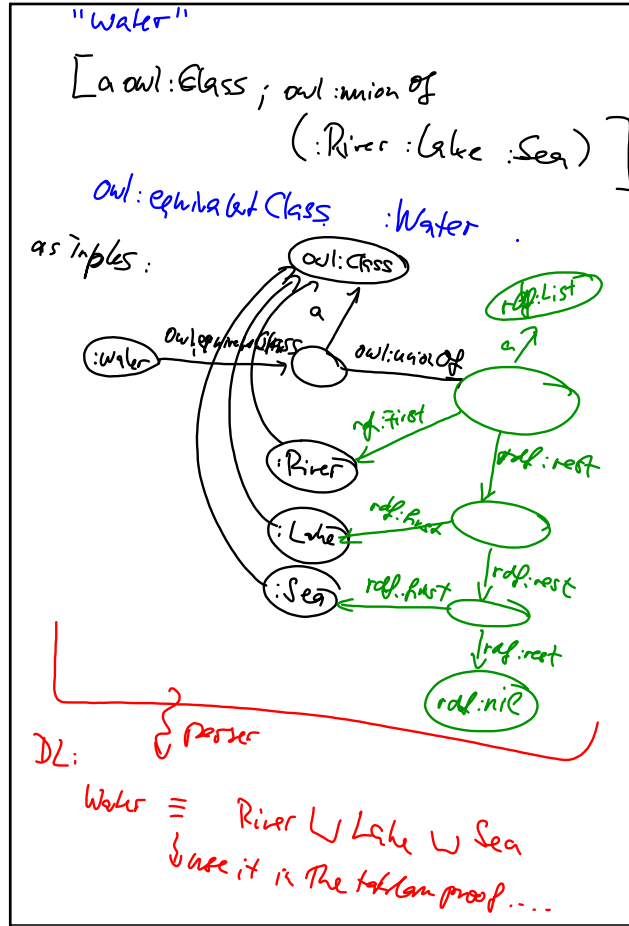 "Water"
[a owl:Class ; owl:unionOf
(:River :Lake :Sea) ]
owl:equivalentClass :Water .
as Triples:
owl:Class
rdf:List
a
a
owl:equivalentClass
owl:unionOf
:Water
rdf:first
:River
rdf:rest
rdf:first
:Lake
rdf:rest
rdf:first
:Sea
rdf:rest
rdf:nil
parser
DL:
Water ≡ River ⊔ Lake ⊔ Sea
use it in the tableau proof ....